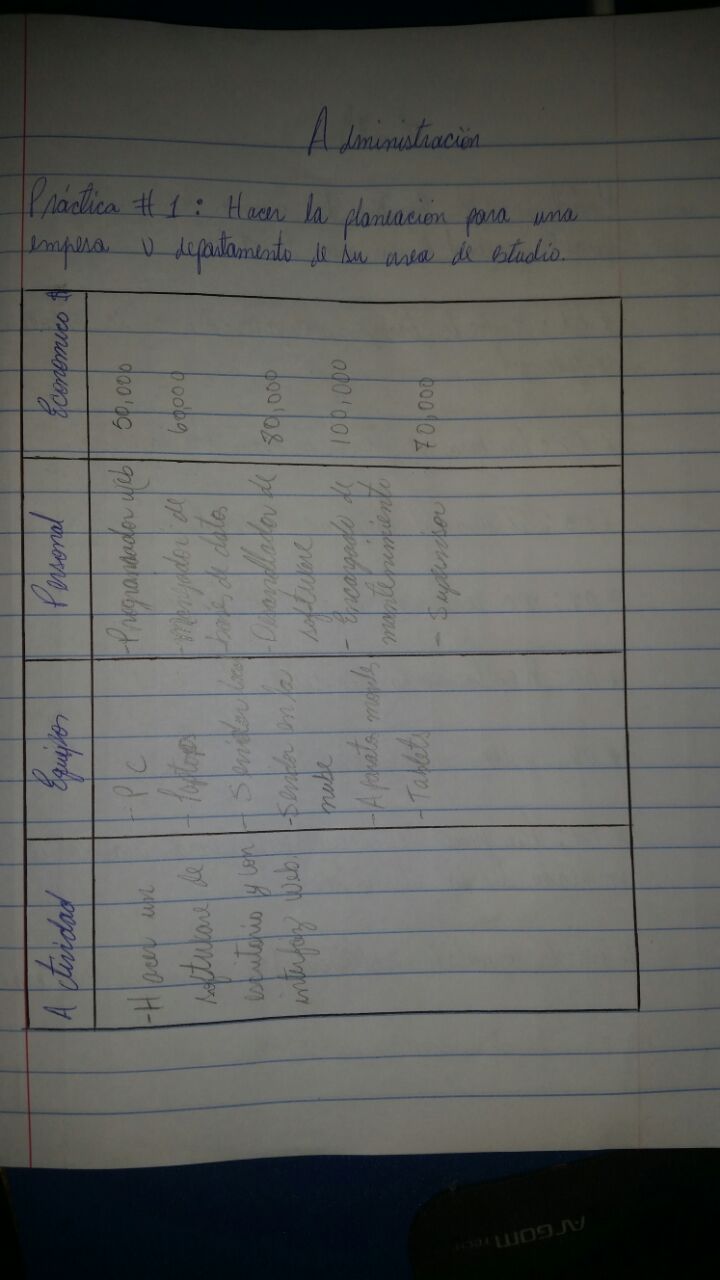 Administración
Práctica # 1: Hacer la planeación para una
empresa o departamento de su area de estudio.
Actividad
-Hacer un
software de
escritorio y con
interfaz web.
Equipos
- PC
- laptops
- Servidor local
-Servidor en la
nube
-Aparatos moviles
-Tablets
Personal
-Programador web
-Manejador de
bases de datos
-Desarrollador de
software
- Encargado de
mantenimiento
- Supervisor
Economico $
50,000
60,000
80,000
100,000
70,000
ALGOM TECH